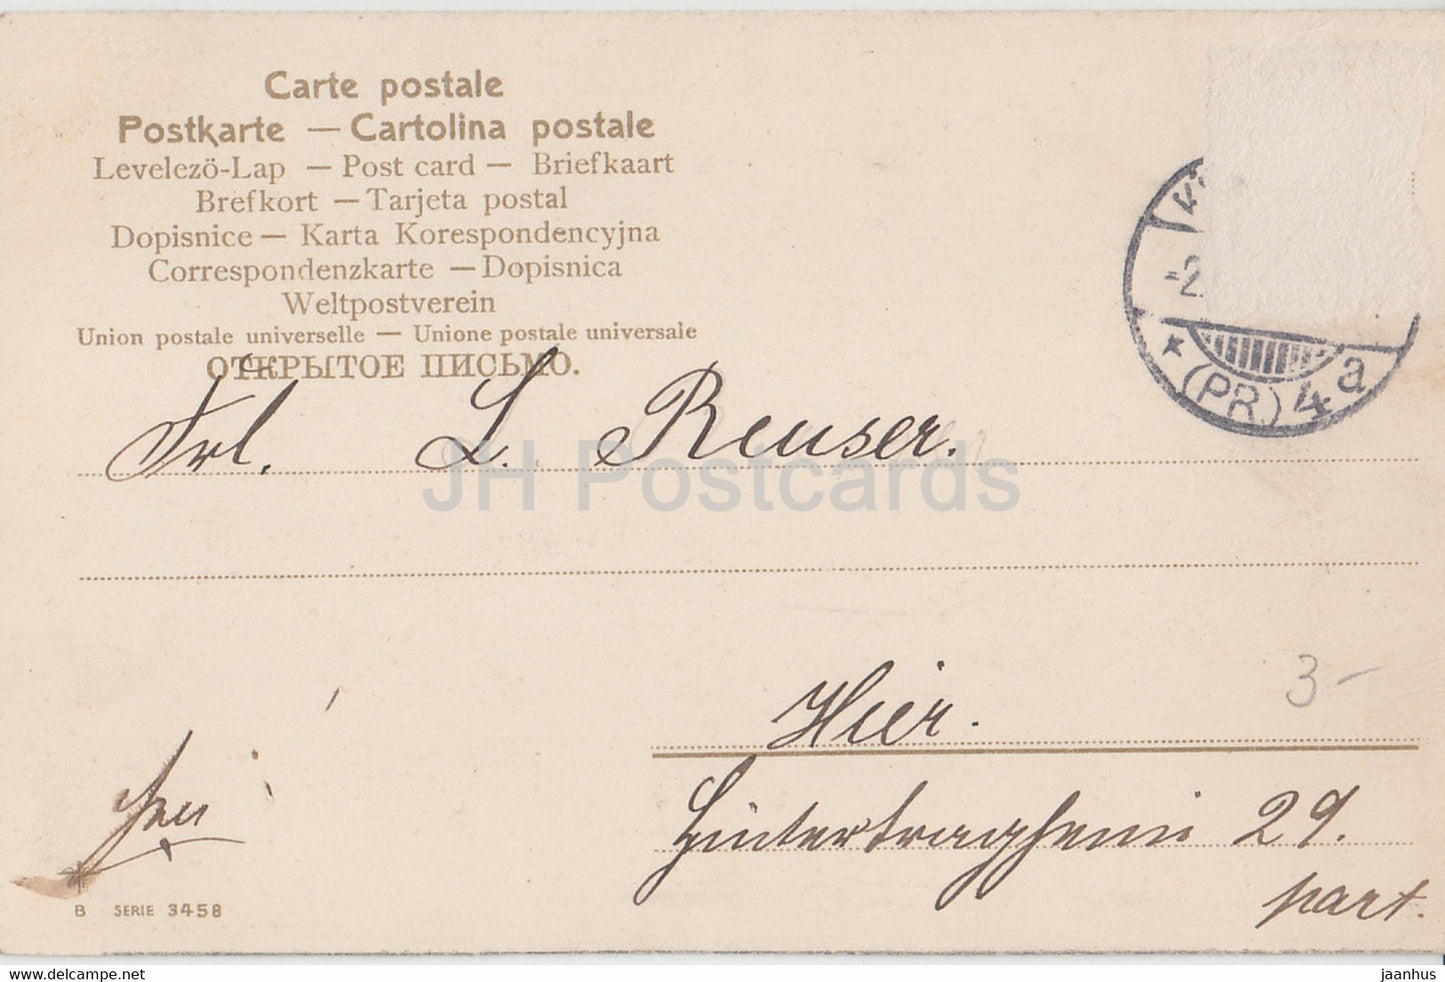 Carte postale
Postkarte — Cartolina postale
Levelező-Lap — Post card — Briefkaart
Brefkort — Tarjeta postal
Dopisnice — Karta Korespondencyjna
Correspondenzkarte — Dopisnica
Weltpostverein
Union postale universelle — Unione postale universale
ОТКРЫТОЕ ПИСЬМО.
-2.
* (PR.) 4 a
Frl. L. Reuser.
JH Postcards
3-
Hier.
29.
part.
B SERIE 3458
www.delcampe.net
jaanhus